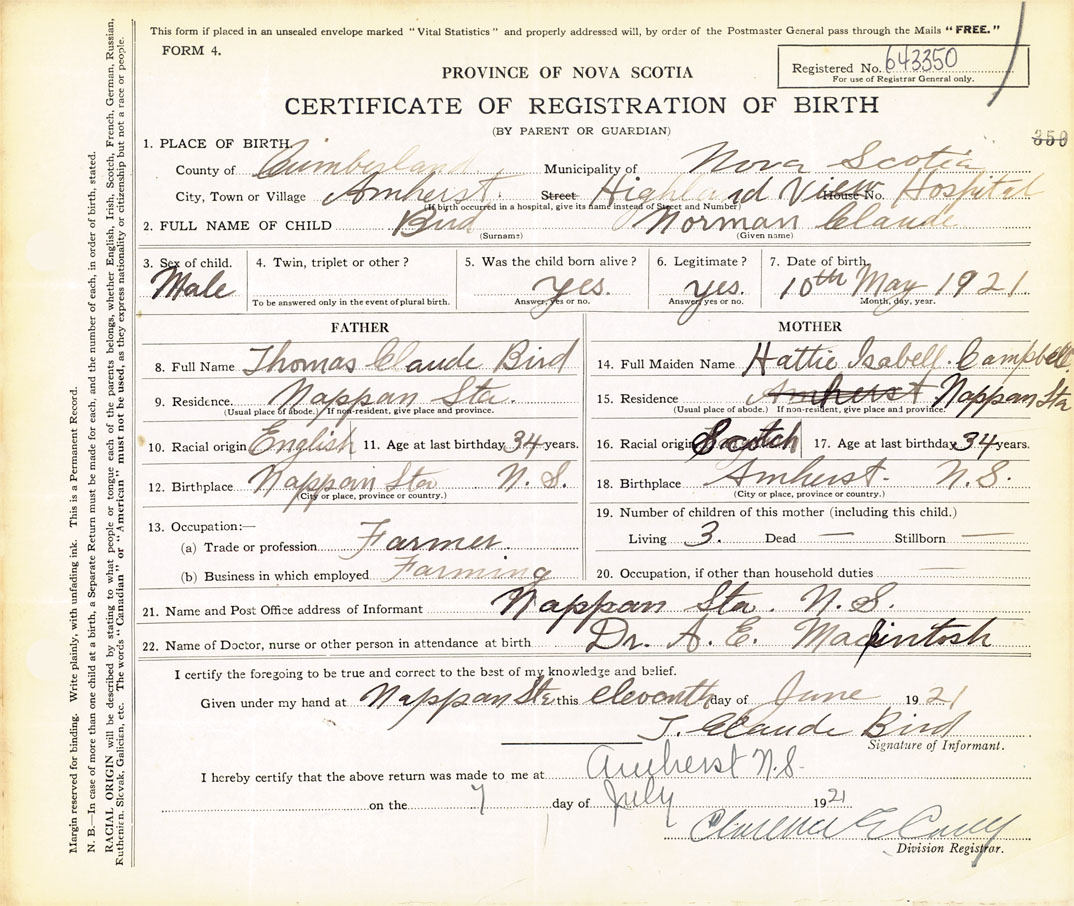 This form if placed in an unsealed envelope marked "Vital Statistics" and properly addressed will, by order of the Postmaster General pass through the Mails "FREE."
FORM 4.
Registered No. 643350
For use of Registrar General only.
PROVINCE OF NOVA SCOTIA
CERTIFICATE OF REGISTRATION OF BIRTH
(BY PARENT OR GUARDIAN)
350
1. PLACE OF BIRTH.
County of Cumberland Municipality of Nova Scotia
City, Town or Village Amherst. Street Highland View House No. Hospital
(If birth occurred in a hospital, give its name instead of Street and Number)
2. FULL NAME OF CHILD Bird Norman Claude
(Surname) (Given name)
3. Sex of child. 4. Twin, triplet or other? 5. Was the child born alive? 6. Legitimate? 7. Date of birth
Male yes. yes. 10th May 1921
To be answered only in the event of plural birth. Answer, yes or no. Answer, yes or no. Month, day, year.
FATHER
8. Full Name Thomas Claude Bird
9. Residence. Nappan Sta.
(Usual place of abode.) If non-resident, give place and province.
10. Racial origin English 11. Age at last birthday 34 years.
12. Birthplace Nappan Sta N. S.
(City or place, province or country.)
13. Occupation:—
(a) Trade or profession Farmer.
(b) Business in which employed Farming
MOTHER
14. Full Maiden Name Hattie Isabell Campbell.
15. Residence Amherst Nappan Sta
(Usual place of abode.) If non-resident, give place and province.
16. Racial origin Scotch 17. Age at last birthday 34 years.
18. Birthplace Amherst- N. S.
(City or place, province or country.)
19. Number of children of this mother (including this child.)
Living 3. Dead — Stillborn —
20. Occupation, if other than household duties —
21. Name and Post Office address of Informant Nappan Sta. N. S.
22. Name of Doctor, nurse or other person in attendance at birth Dr. A. E. Mackintosh
I certify the foregoing to be true and correct to the best of my knowledge and belief.
Given under my hand at Nappan Sta this eleventh day of June 1921
T. Claude Bird
Signature of Informant.
I hereby certify that the above return was made to me at Amherst N.S.
on the 7 day of July 1921
Clarence E
Division Registrar.
Margin reserved for binding. Write plainly, with unfading ink. This is a Permanent Record.
N. B.—In case of more than one child at a birth, a Separate Return must be made for each, and the number of each, in order of birth, stated.
RACIAL ORIGIN will be described by stating to what people or tongue each of the parents belongs, whether English, Irish, Scotch, French, German, Russian,
Ruthenian, Slovak, Galician, etc. The words "Canadian" or "American" must not be used, as they express nationality or citizenship but not a race or people.